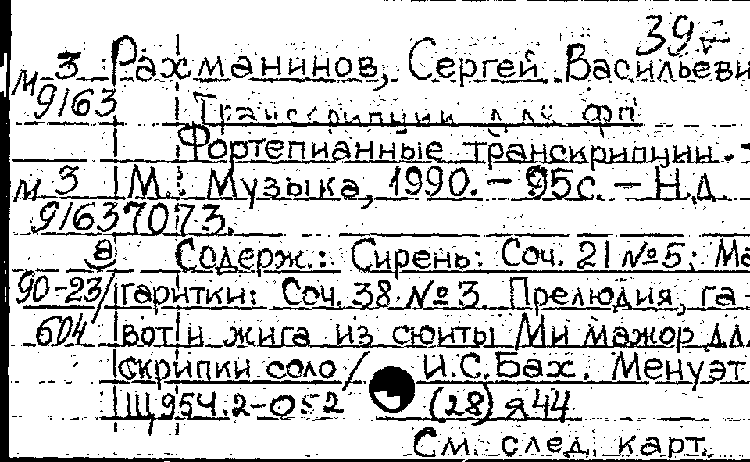 39.-
М 3 Рахманинов, Сергей Васильеви
9163 Транскрипции для фп
Фортепианные транскрипции. -
М 3 М.: Музыка, 1990. - 95с. - Н.д.
91637073.
в Содерж.: Сирень: Соч. 21 №5; Ма
90-23/ гаритки: Соч. 38 №3. Прелюдия, га-
604 вот и жига из сюиты Ми мажор дл
скрипки соло / И.С.Бах. Менуэт
Щ954.2-052 (28) я44
См. след. карт.